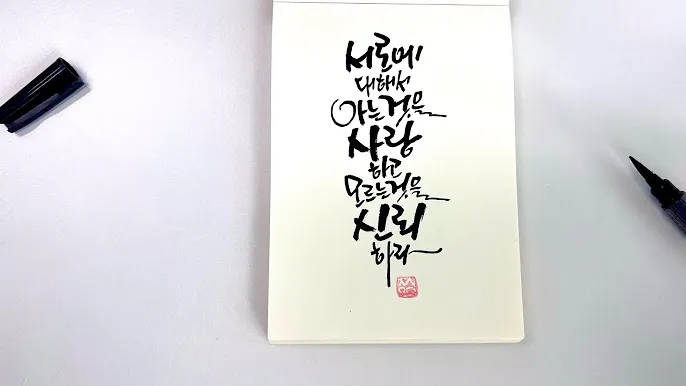 서로에
대해서
아는것을
사랑
하고
모르는것을
신뢰
하라